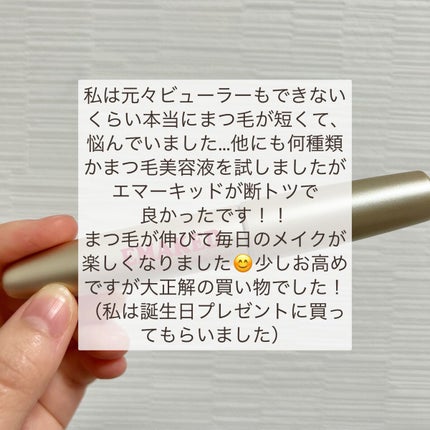 私は元々ビューラーもできない
くらい本当にまつ毛が短くて、
悩んでいました…他にも何種類
かまつ毛美容液を試しましたが
エマーキッドが断トツで
良かったです！！
まつ毛が伸びて毎日のメイクが
楽しくなりました😊少しお高め
ですが大正解の買い物でした！
（私は誕生日プレゼントに買っ
てもらいました）